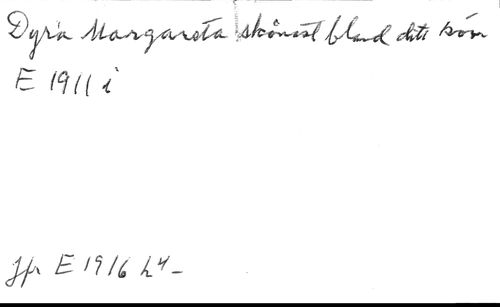 Dyra Margareta skönast bland ditt kön
E 1911 i
Jfr E 1916 h4-